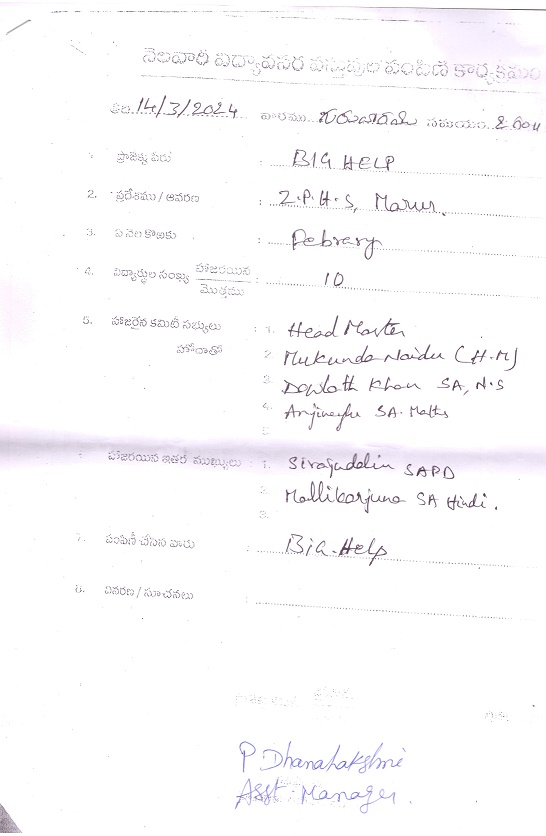 నెలవారి విద్యావసర వస్తువుల పంపిణి కార్యక్రమం
తేది 14/3/2024 వారము గురువారము సమయం
1. ప్రాజెక్టు పేరు : BIG HELP
2. ప్రదేశము / ఆవరణ : Z.P.H.S, Marur.
3. ఏ నెల కొఱకు : Febrary
4. విద్యార్థుల సంఖ్య హాజరయిన / మొత్తము : 10
5. హాజరైన కమిటీ సభ్యులు : 1. Head Master
హోదాతో 2. Mukunda Naidu (H.M)
3. Dowlath Khan SA, N.S
4. Anjineyulu SA. Maths
5
హాజరయిన ఇతర ముఖ్యులు : 1. Sirajuddin SAPD
2. Mallikarjuna SA Hindi.
3.
7. పంపిణీ చేసిన వారు : BiG-Help
8. వివరణ / సూచనలు :
P Dhanalakshmi
Asst. Manager.